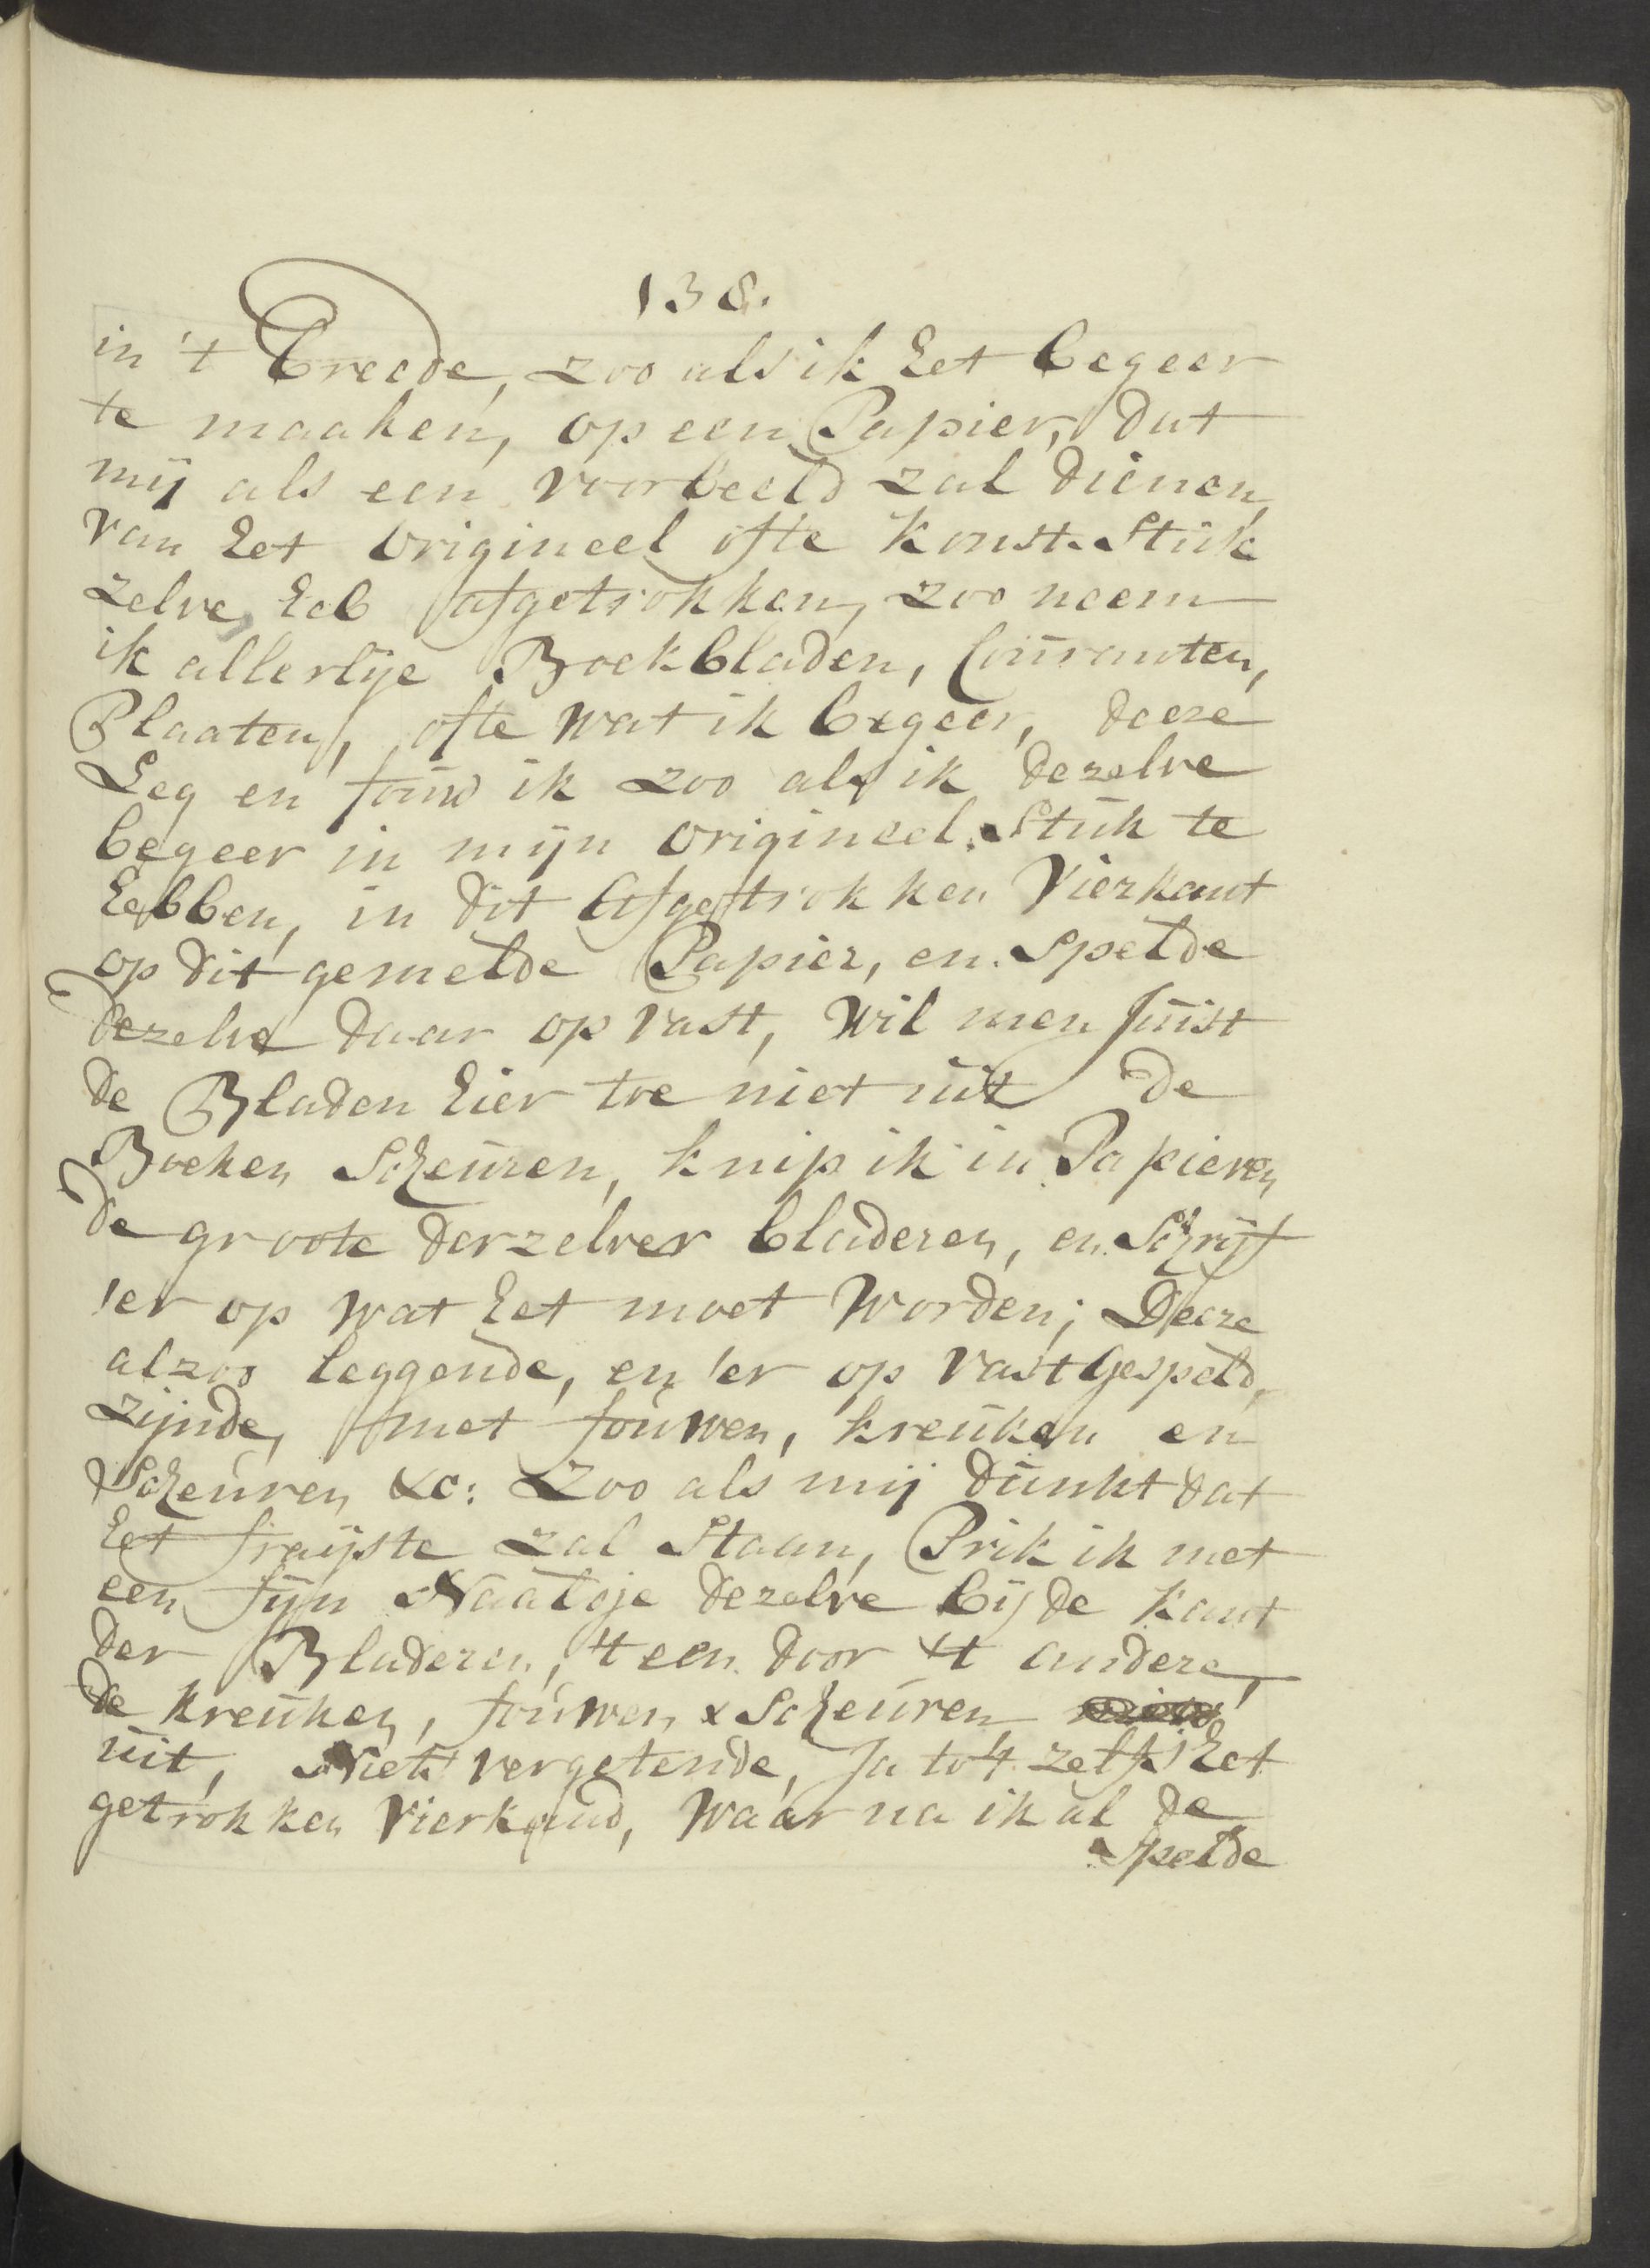 138.
in 't breede, zoo als ik het begeer
te maaken, op een Papier, dat
mij als een voorbeeld zal dienen,
van het origineel ofte konst-Stuk
zelve, heb afgetrokken, zoo neem
ik allerlije Boekbladen, Couranten,
Plaaten, ofte wat ik begeer, deeze
Leg en fouw ik zoo als ik dezelve
begeer in mijn origineel-Stuk te
hebben, in dit afgetrokken Vierkant
op dit gemelde Papier, en Spelde
dezelve daar op vast, wil men Juist
de Bladen hier toe niet uit de
Boeken Scheuren, knip ik in Papieren
de groote derzelver bladeren, en Schrijf
'er op wat het moet worden; Deeze
alzoo leggende, en 'er op vastgespeld,
zijnde, met fouwen, kreuken en
Scheuren &c: Zoo als mij dunkt dat
het fraijste zal Staan, Prik ik met
een fijn Naaldje dezelve bij de kant
der Bladeren, 't een door 't andere,
de kreuken, fouwen & Scheuren
uit, Niet vergetende, Ja tot zelfs het
getrokken Vierkand, waar na ik al de
Spelde